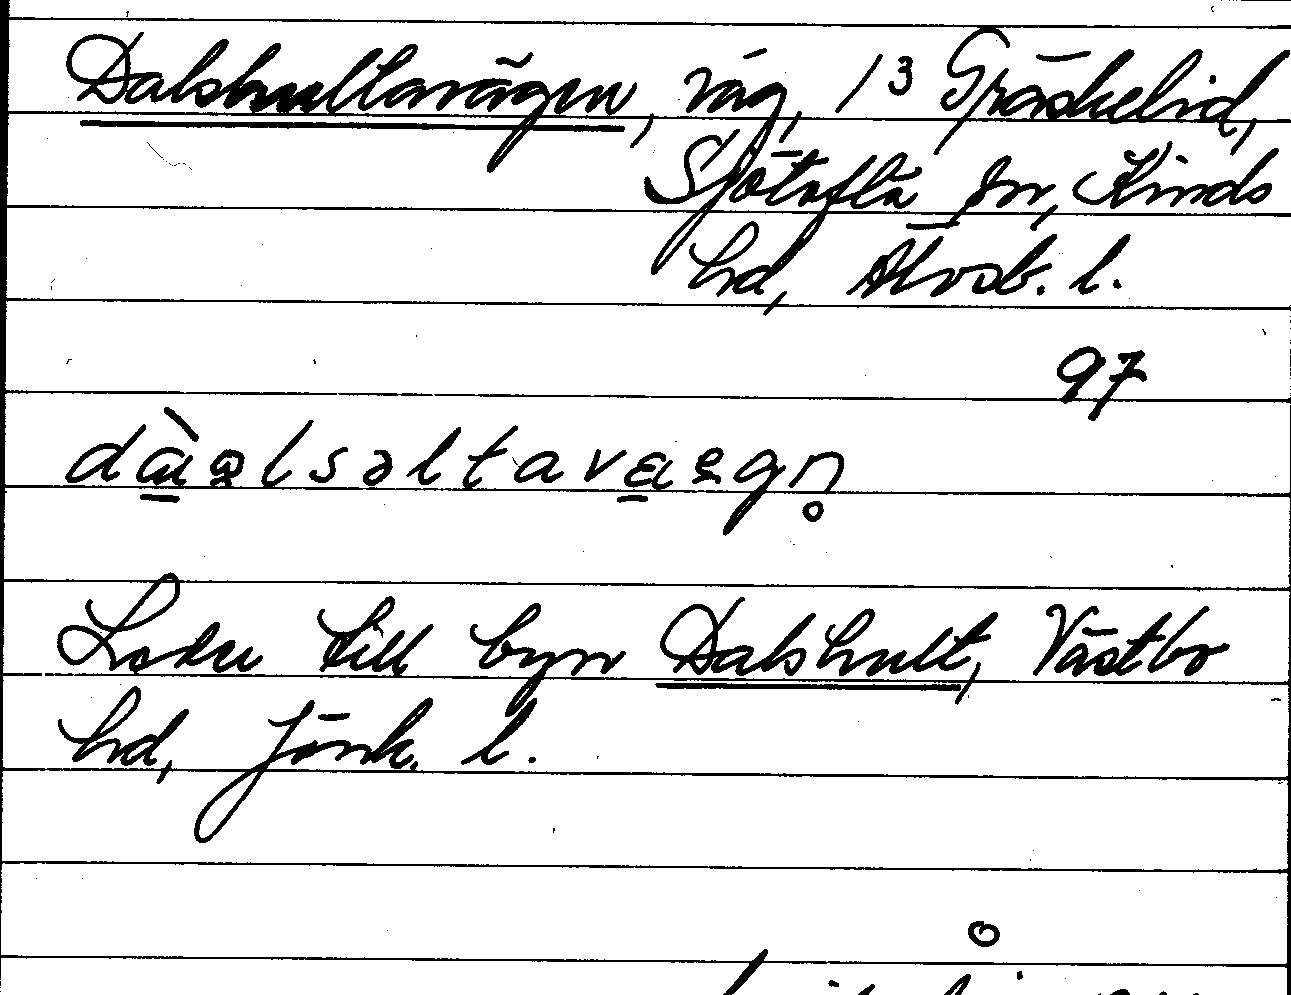 Dalshultavägen, väg, 1³ Gräskelid,
Sjötofta sn, Kinds
hd, Älvsb. l.
97
Leder till byn Dalshult, Västbo
hd, Jönk. l.